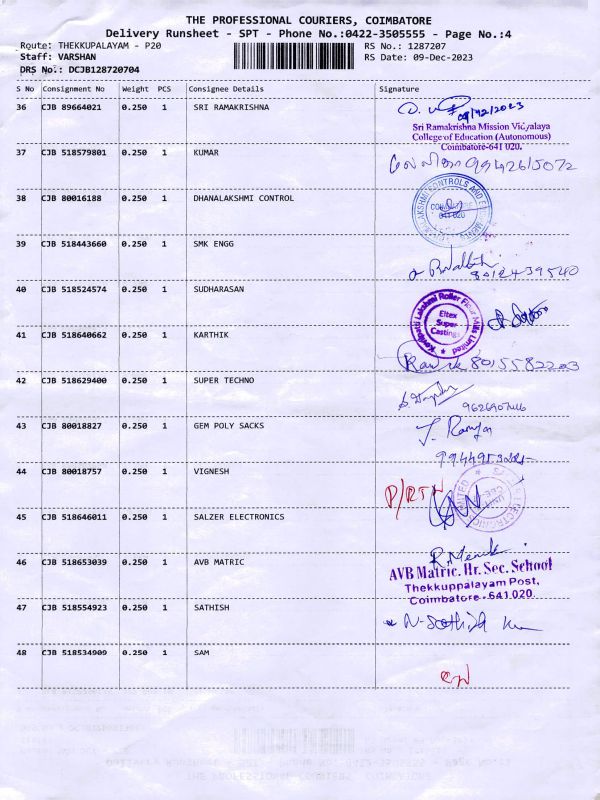 THE PROFESSIONAL COURIERS, COIMBATORE
Delivery Runsheet - SPT - Phone No.:0422-3505555 - Page No.:4
Route: THEKKUPALAYAM - P20 RS No.: 1287207
Staff: VARSHAN RS Date: 09-Dec-2023
DRS No.: DCJB128720704
S No Consignment No Weight PCS Consignee Details Signature
36 CJB 89664021 0.250 1 SRI RAMAKRISHNA
09/12/2023
Sri Ramakrishna Mission Vidyalaya
College of Education (Autonomous)
Coimbatore-641 020.
37 CJB 518579801 0.250 1 KUMAR 9942615072
38 CJB 80016188 0.250 1 DHANALAKSHMI CONTROL
39 CJB 518443660 0.250 1 SMK ENGG
8012439540
40 CJB 518524574 0.250 1 SUDHARASAN
Lakshmi Roller Flour Mills Limited
Eltex
Super
Castings
41 CJB 518640662 0.250 1 KARTHIK
8015582203
42 CJB 518629400 0.250 1 SUPER TECHNO
43 CJB 80018827 0.250 1 GEM POLY SACKS
J. Ramya
44 CJB 80018757 0.250 1 VIGNESH
P/RTN
45 CJB 518646011 0.250 1 SALZER ELECTRONICS
46 CJB 518653039 0.250 1 AVB MATRIC
AVB Matric. Hr. Sec. School
Thekkuppalayam Post,
Coimbatore-641 020.
47 CJB 518554923 0.250 1 SATHISH
N-Sathish
48 CJB 518534909 0.250 1 SAM